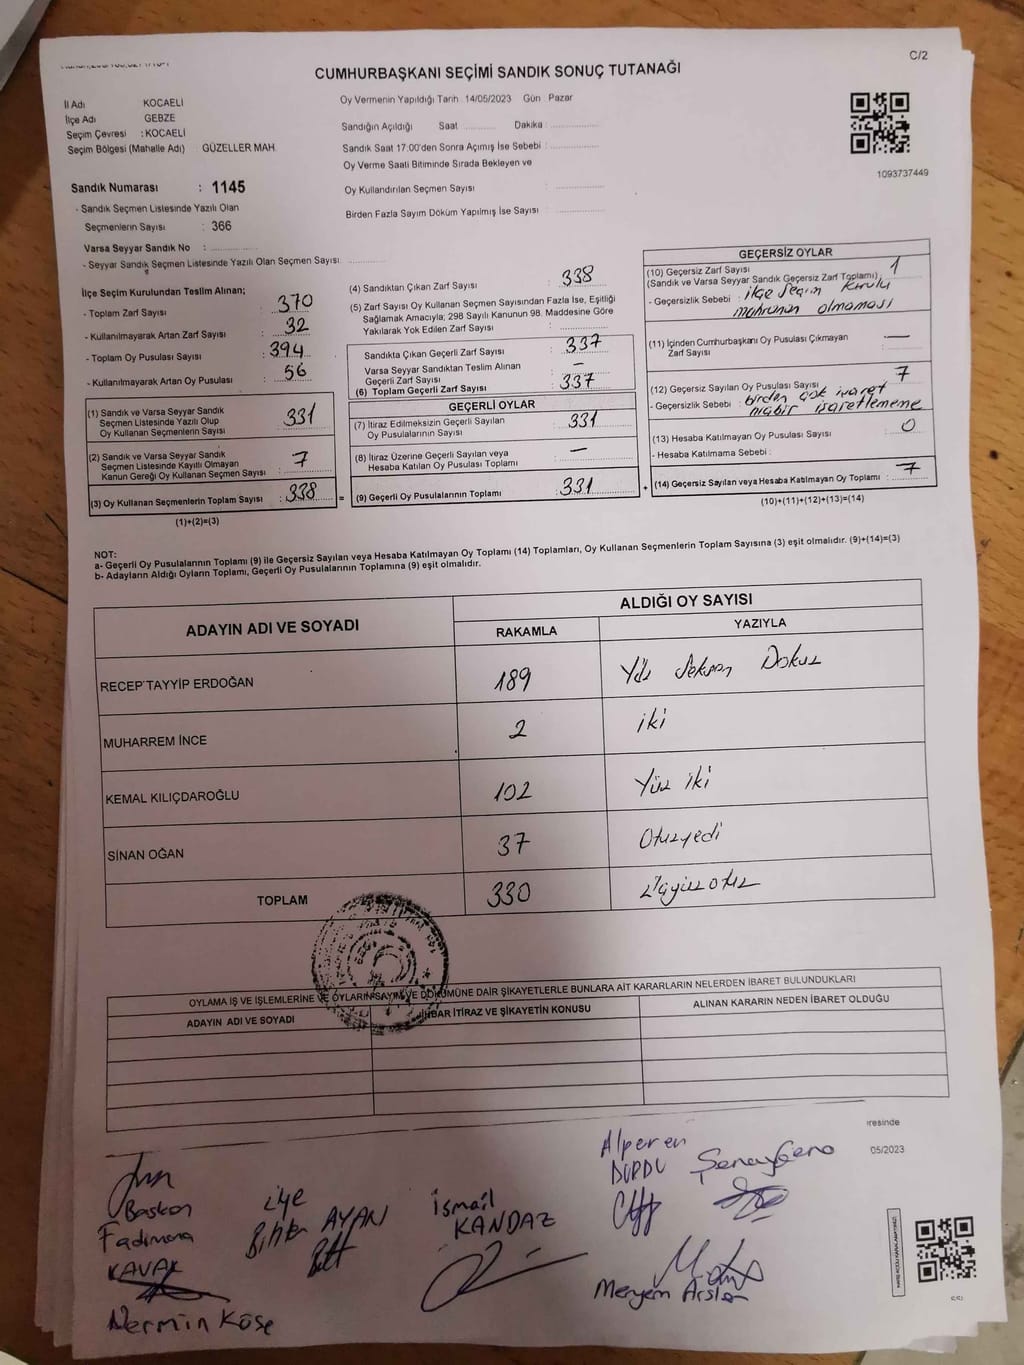 C/2
CUMHURBAŞKANI SEÇİMİ SANDIK SONUÇ TUTANAĞI
İl Adı KOCAELİ
İlçe Adı GEBZE
Seçim Çevresi : KOCAELİ
Seçim Bölgesi (Mahalle Adı) GÜZELLER MAH.
Sandık Numarası : 1145
- Sandık Seçmen Listesinde Yazılı Olan
Seçmenlerin Sayısı : 366
Varsa Seyyar Sandık No :
- Seyyar Sandık Seçmen Listesinde Yazılı Olan Seçmen Sayısı:
Oy Vermenin Yapıldığı Tarih : 14/05/2023 Gün : Pazar
Sandığın Açıldığı Saat Dakika :
Sandık Saat 17:00'den Sonra Açımış İse Sebebi :
Oy Verme Saati Bitiminde Sırada Bekleyen ve
Oy Kullandırılan Seçmen Sayısı :
Birden Fazla Sayım Döküm Yapılmış İse Sayısı :
1093737449
İlçe Seçim Kurulundan Teslim Alınan;
- Toplam Zarf Sayısı : 370
- Kullanılmayarak Artan Zarf Sayısı : 32
- Toplam Oy Pusulası Sayısı : 394
- Kullanılmayarak Artan Oy Pusulası : 56
(1) Sandık ve Varsa Seyyar Sandık
Seçmen Listesinde Yazılı Olup
Oy Kullanan Seçmenlerin Sayısı : 331
(2) Sandık ve Varsa Seyyar Sandık
Seçmen Listesinde Kayıtlı Olmayan
Kanun Gereği Oy Kullanan Seçmen Sayısı : 7
(3) Oy Kullanan Seçmenlerin Toplam Sayısı : 338
(1)+(2)=(3)
(4) Sandıktan Çıkan Zarf Sayısı : 338
(5) Zarf Sayısı Oy Kullanan Seçmen Sayısından Fazla İse, Eşitliği
Sağlamak Amacıyla; 298 Sayılı Kanunun 98. Maddesine Göre
Yakılarak Yok Edilen Zarf Sayısı :
Sandıkta Çıkan Geçerli Zarf Sayısı : 337
Varsa Seyyar Sandıktan Teslim Alınan
Geçerli Zarf Sayısı : –
(6) Toplam Geçerli Zarf Sayısı : 337
GEÇERLİ OYLAR
(7) İtiraz Edilmeksizin Geçerli Sayılan
Oy Pusulalarının Sayısı : 331
(8) İtiraz Üzerine Geçerli Sayılan veya
Hesaba Katılan Oy Pusulası Toplamı : –
= (9) Geçerli Oy Pusulalarının Toplamı : 331
GEÇERSİZ OYLAR
(10) Geçersiz Zarf Sayısı 1
(Sandık ve Varsa Seyyar Sandık Geçersiz Zarf Toplamı)
- Geçersizlik Sebebi : ilçe seçim kurulu
mührünün olmaması
(11) İçinden Cumhurbaşkanı Oy Pusulası Çıkmayan
Zarf Sayısı : —
(12) Geçersiz Sayılan Oy Pusulası Sayısı : 7
- Geçersizlik Sebebi : birden çok işaret
hiçbir işaretlememe
(13) Hesaba Katılmayan Oy Pusulası Sayısı : 0
- Hesaba Katılmama Sebebi :
+ (14) Geçersiz Sayılan veya Hesaba Katılmayan Oy Toplamı : 7
(10)+(11)+(12)+(13)=(14)
NOT:
a- Geçerli Oy Pusulalarının Toplamı (9) ile Geçersiz Sayılan veya Hesaba Katılmayan Oy Toplamı (14) Toplamları, Oy Kullanan Seçmenlerin Toplam Sayısına (3) eşit olmalıdır. (9)+(14)=(3)
b- Adayların Aldığı Oyların Toplamı, Geçerli Oy Pusulalarının Toplamına (9) eşit olmalıdır.
ADAYIN ADI VE SOYADI ALDIĞI OY SAYISI
RAKAMLA YAZIYLA
RECEP TAYYİP ERDOĞAN 189 Yüz Seksen Dokuz
MUHARREM İNCE 2 iki
KEMAL KILIÇDAROĞLU 102 Yüz iki
SİNAN OĞAN 37 Otuzyedi
TOPLAM 330 üçyüzotuz
OYLAMA İŞ VE İŞLEMLERİNE VE OYLARIN SAYIM VE DÖKÜMÜNE DAİR ŞİKAYETLERLE BUNLARA AİT KARARLARIN NELERDEN İBARET BULUNDUKLARI
ADAYIN ADI VE SOYADI İHBAR İTİRAZ VE ŞİKAYETİN KONUSU ALINAN KARARIN NEDEN İBARET OLDUĞU
resinde
05/2023
Başkan
Fadimana
KAVAK
Nermin Köse
üye
AYAN
ismail
KANDAZ
Alperen
DURDU
Meryem Arslan